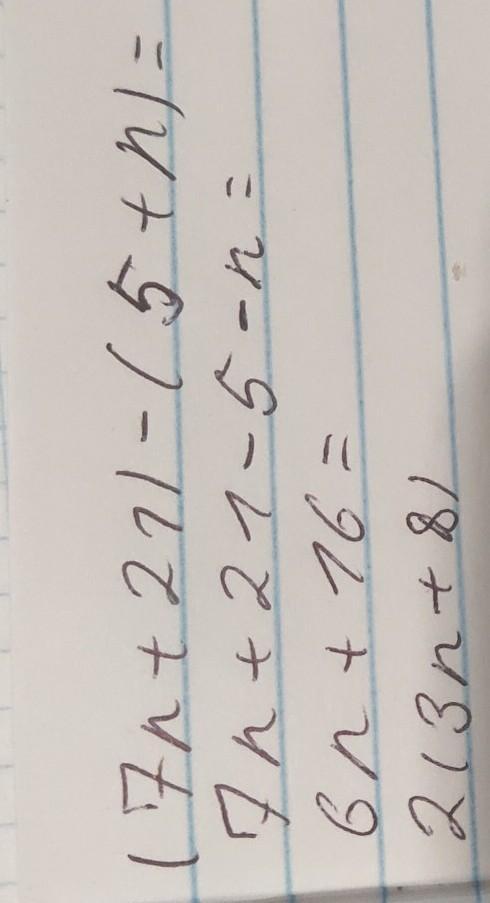 (7n+21)-(5+n)=
7n+21-5-n=
6n+16=
2(3n+8)